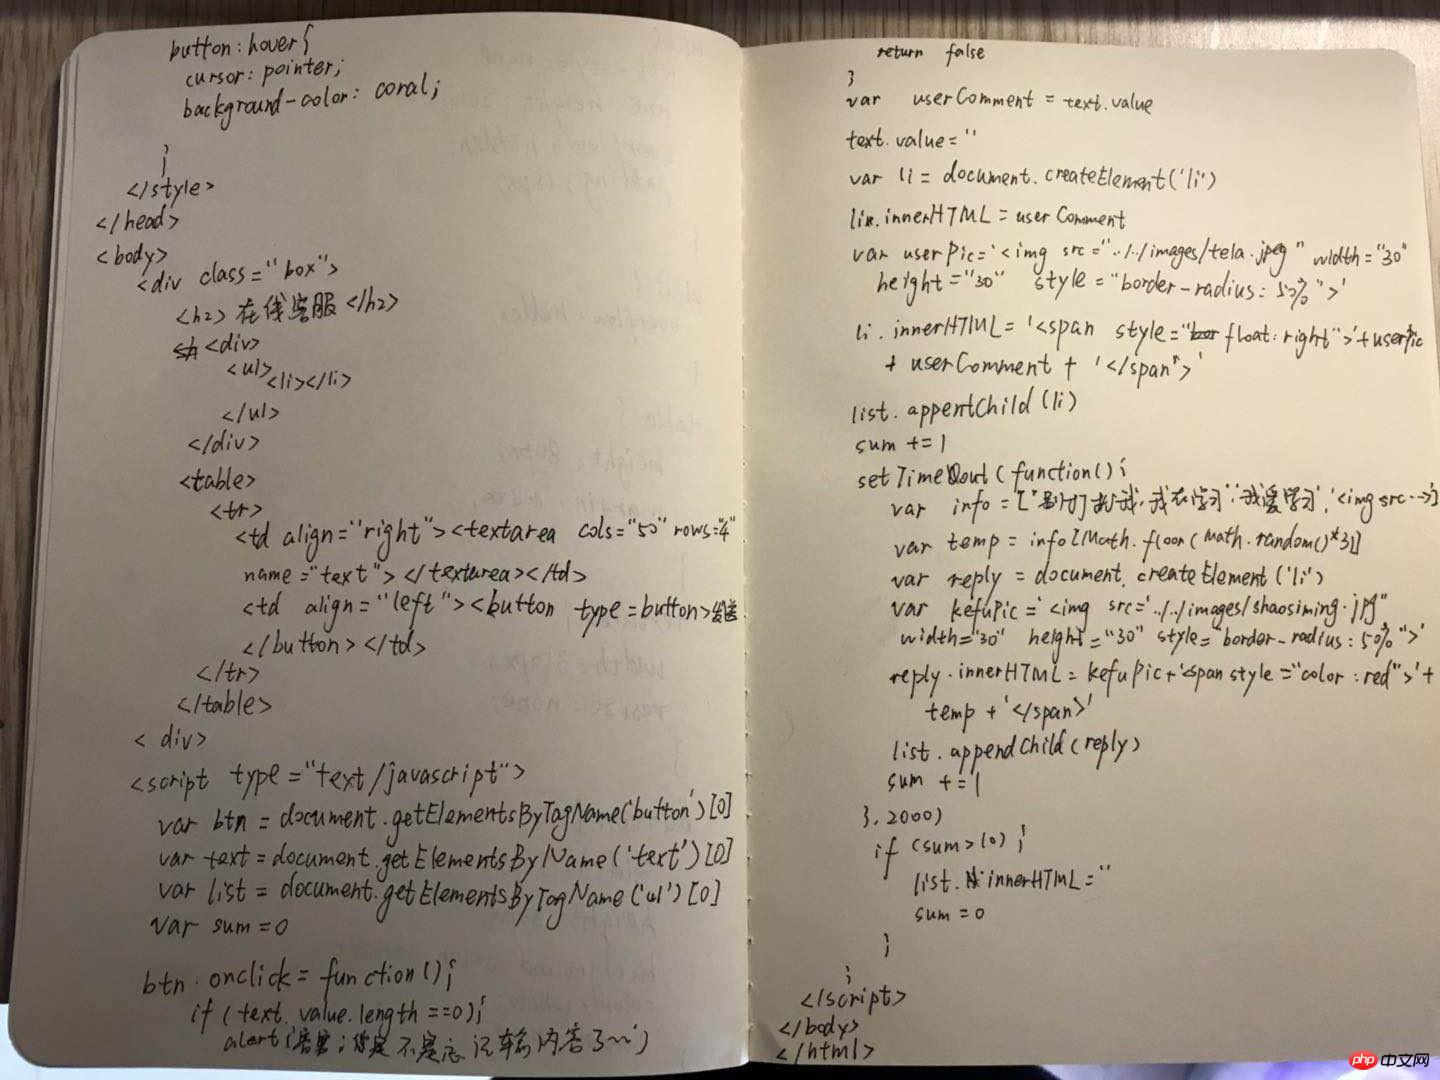 button:hover{
cursor: pointer;
background-color: coral;
}
</style>
</head>
<body>
<div class="box">
<h2>在线客服</h2>
<div>
<ul>
<li></li>
</ul>
</div>
<table>
<tr>
<td align="right"><textarea cols="50" rows="4"
name="text"></textarea></td>
<td align="left"><button type=button>发送
</button></td>
</tr>
</table>
<div>
<script type="text/javascript">
var btn = document.getElementsByTagName('button')[0]
var text = document.getElementsByName('text')[0]
var list = document.getElementsByTagName('ul')[0]
var sum = 0
btn.onclick = function(){
if (text.value.length ==0){
alert( 不是忘记输内容了~~')
return false
}
var userComment = text.value
text.value = ''
var li = document.createElement('li')
li.innerHTML = userComment
var userPic = '<img src="../../images/tela.jpeg" width="30"
height="30" style="border-radius: 50%">'
li.innerHTML = '<span style="float:right">'+userPic
+ userComment + '</span>'
list.appentChild(li)
sum += 1
setTimeOout(function(){
var info = [ '我爱学习','<img src-->']
var temp = info[Math.floor(Math.random()*3)]
var reply = document.createElement('li')
var kefuPic = '<img src='../../images/shaosiming.jpg"
width="30" height="30" style="border-radius: 50%">'
reply.innerHTML = kefuPic+'<span style="color:red">'+
temp + '</span>'
list.appendChild(reply)
sum += 1
},2000)
if (sum>10){
list.innerHTML = ''
sum = 0
}
}
</script>
</body>
</html>
php 中文网